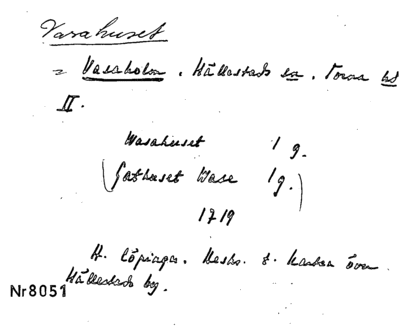 Vasahuset
= Vasaholm. Hällestads sn. Torna hd
II.
Wasahuset 1 g.
(Gathuset Wase 1 g.)
1719
H. Löpiaga. Beskr. t. kartan över
Hällestads by.
Nr8051